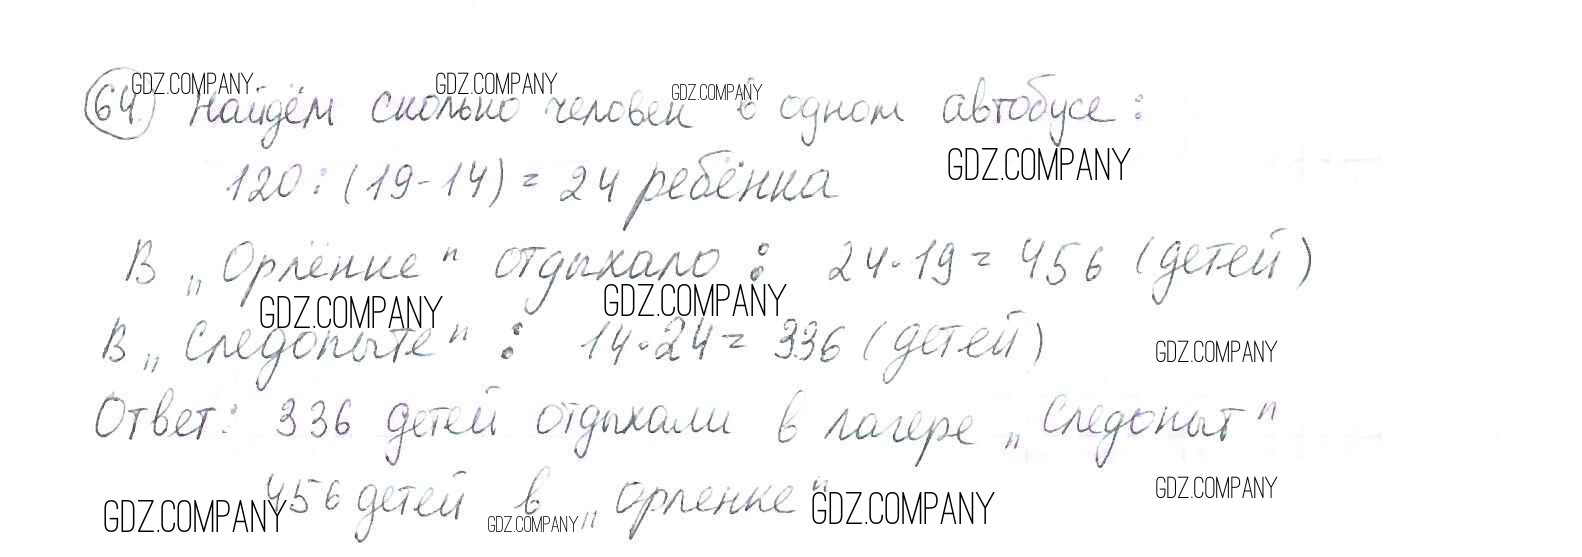 GDZ.COMPANY GDZ.COMPANY GDZ.COMPANY
64. Найдём сколько человек в одном автобусе:
GDZ.COMPANY
120 : (19-14) = 24 ребёнка
В „Орлёнке" отдыхало : 24·19 = 456 (детей)
GDZ.COMPANY GDZ.COMPANY
В „Следопыте" : 14·24 = 336 (детей)
GDZ.COMPANY
Ответ: 336 детей отдыхали в лагере „Следопыт"
456 детей в „Орленке"
GDZ.COMPANY GDZ.COMPANY GDZ.COMPANY GDZ.COMPANY